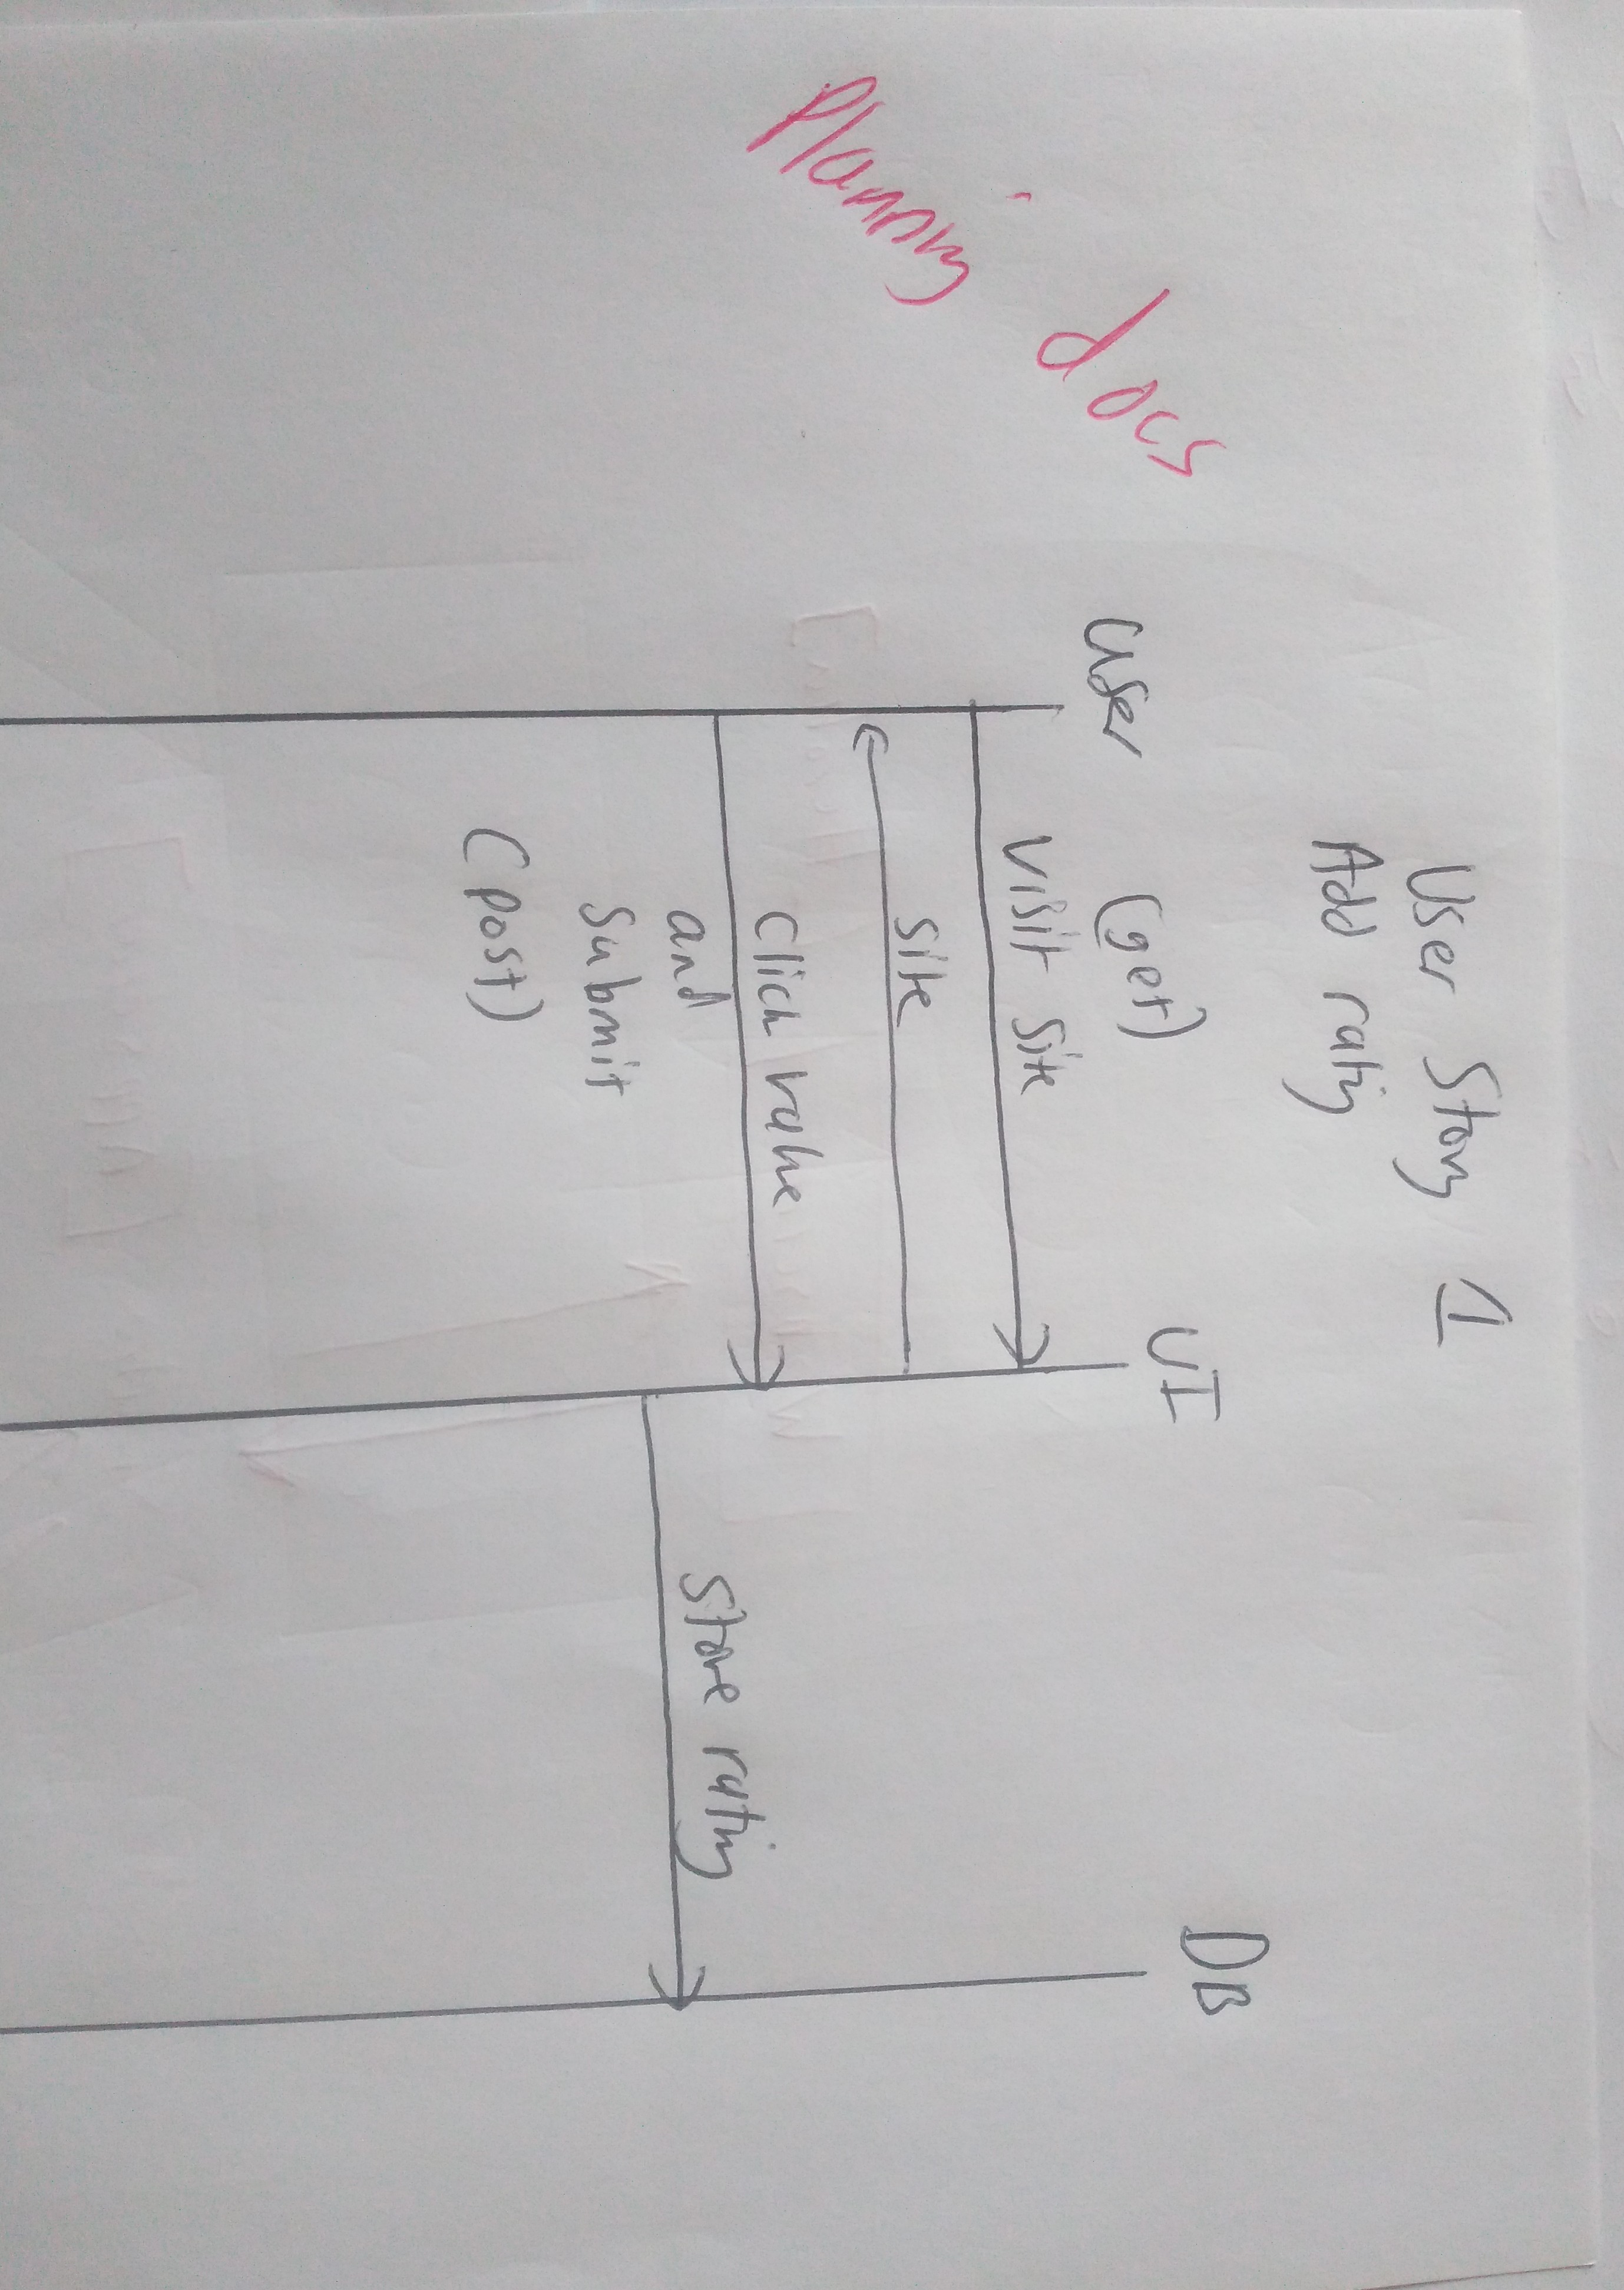 User Story 1
Add rating
Planning docs
User
(get)
UI
DB
visit site
site
Click value
and
Submit
(post)
Store rating